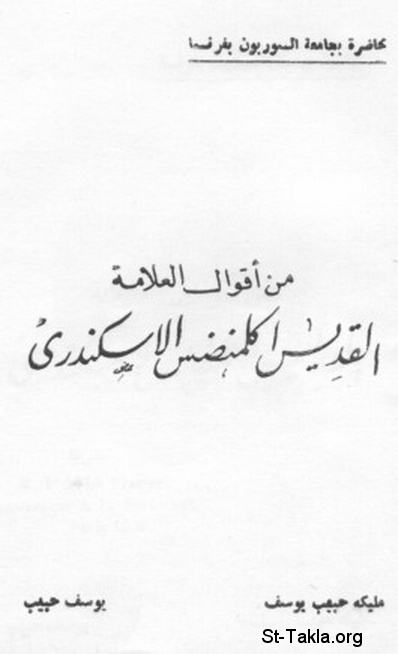 محاضرة بجامعة السوربون بفرنسا
من أقوال العلامة
القديس اكلمنضس الإسكندرى
مليكه حبيب يوسف
يوسف حبيب
St-Takla.org